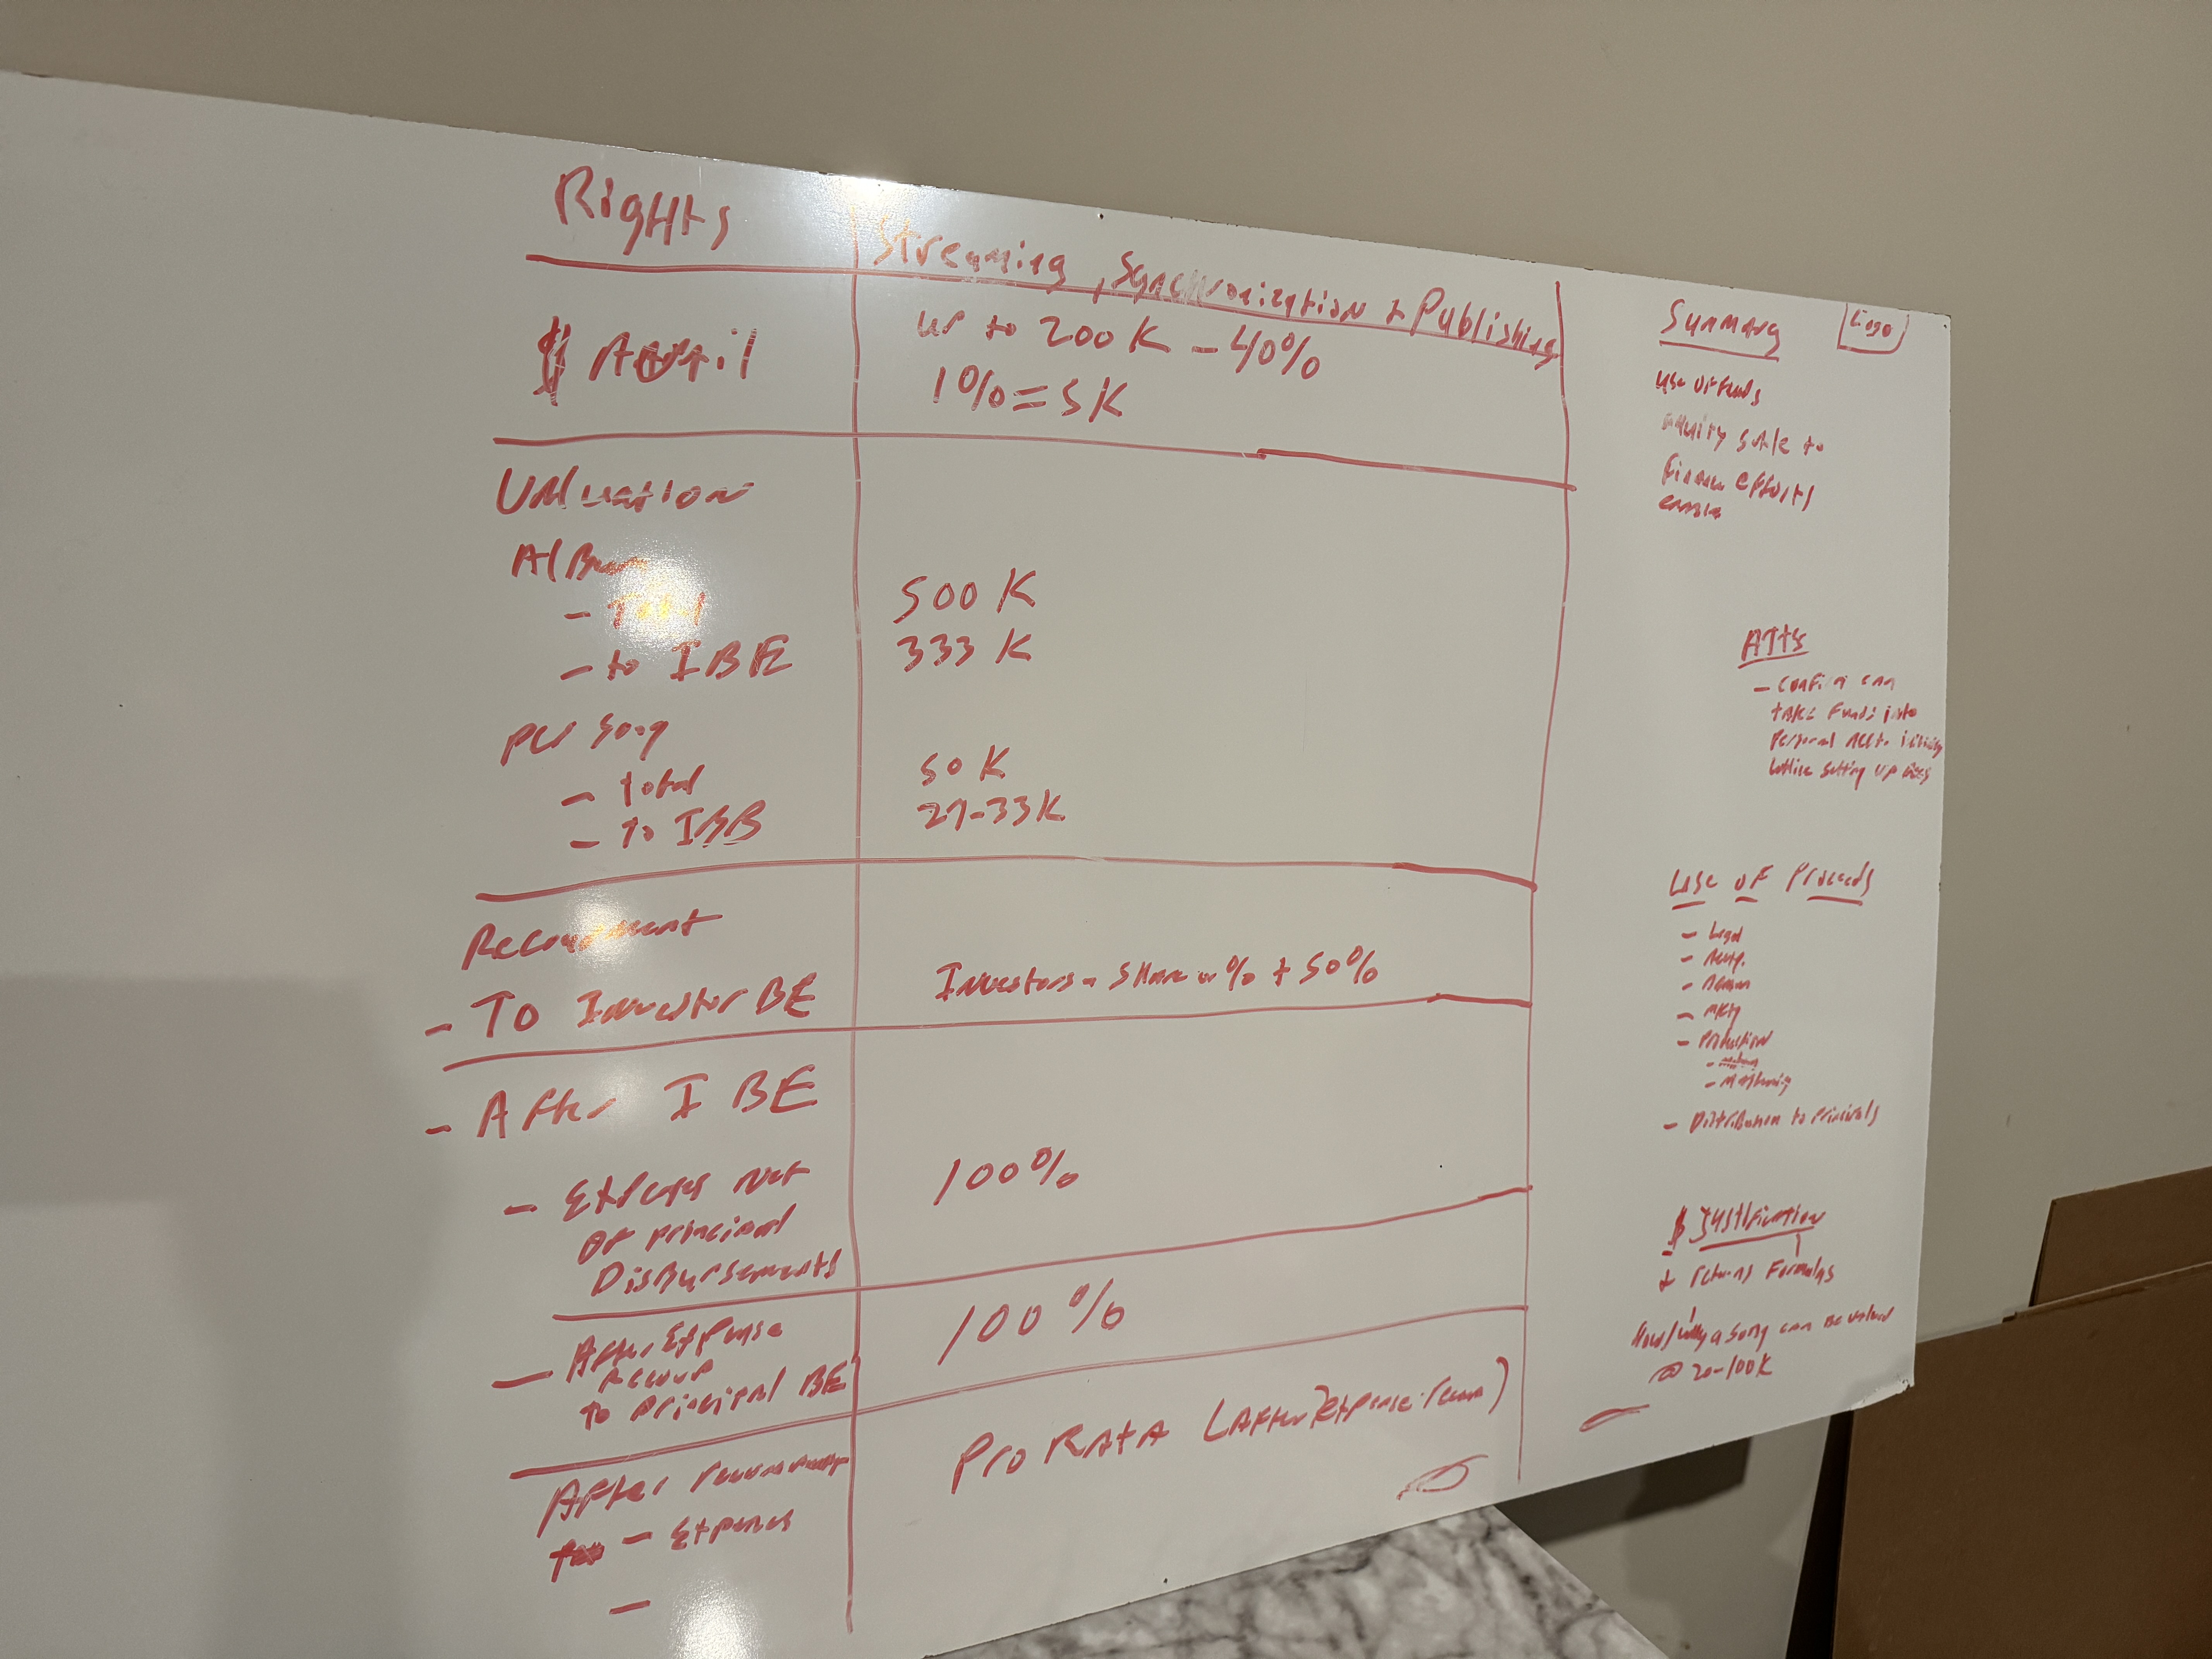 Rights
Streaming, Synchronization + Publishing
$ Avail
up to 200K - 40%
1% = 5K
Valuation
Album
- Total
500 K
- to IBE
333 K
Per Song
- total
50 K
- to IBB
27-33K
Recoupment
- To Investor BE
Investors - Share % + 50%
- After IBE
- Expenses Net
of principal
Disbursements
100%
- After Expense
Recoup
to principal BE
100%
After recoupment
- Expenses
-
Pro Rata (After Expense recoup)
Summary
Logo
Use of Funds
equity sale to
Finance efforts
ATTS
- Confirm can
take Funds into
Personal Acct. initially
while setting up
Use of Proceeds
- Legal
- Acctg.
- Admin
- Mktg
- Production
- Mastering
- Distribution to Principals
$ Justification
+ returns Formulas
How/why a song can be valued
@ 20-100K